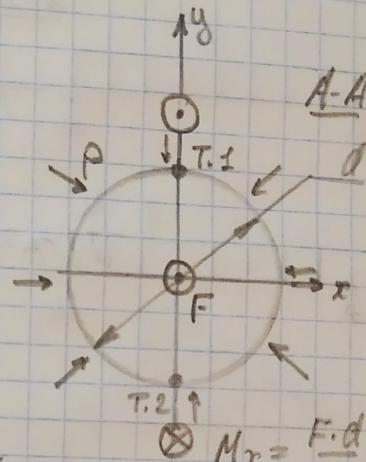 y
A-A
ρ
T.1
d
F
x
T.2
Mx = F·d